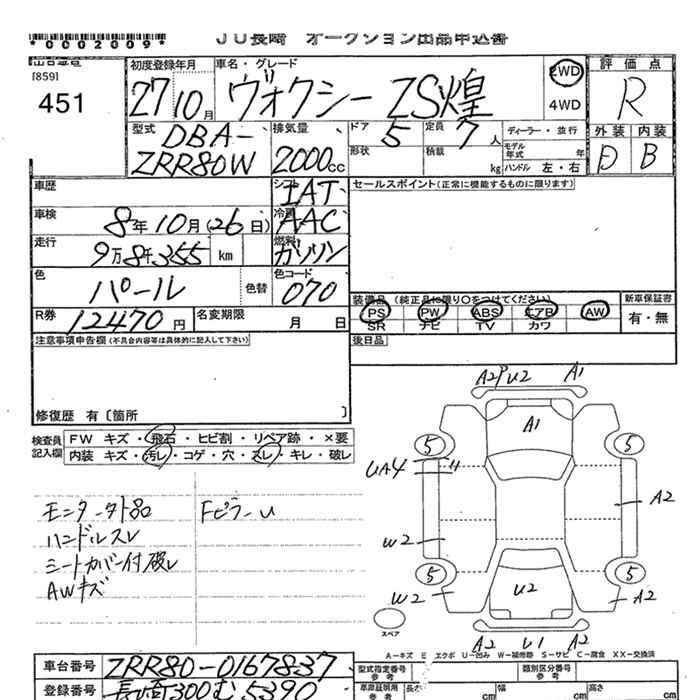 *0002009*
JU長崎 オークション出品申込書
[859]
451
初度登録年月
27年10月
車名・グレード
ヴォクシー ZS煌
2WD
4WD
評価点
R
外装 内装
D B
型式
DBA-
ZRR80W
排気量
2000cc
ドア
5
定員
7人
形状
積載
kg
ディーラー・並行
モデル年式 年
ハンドル 左・右
車歴
シフト
IAT
セールスポイント(正常に機能するものに限ります)
車検
8年10月(26日)
冷房
AAC
走行
9万8千355 km
燃料
ガソリン
色
パール
色替
色コード
070
R券
12470円
名変期限
月 日
装備品 (純正品に限り○をつけてください)
PS PW ABS エアB AW
SR ナビ TV カワ
新車保証書
有・無
注意事項申告欄(不具合内容等は具体的に記入して下さい)
後日品
修復歴 有〔箇所 〕
検査員記入欄
FW キズ・飛石・ヒビ割・リペア跡・×要
内装 キズ・汚レ・コゲ・穴・スレ・キレ・破レ
モニター欠品
ハンドルスレ
シートカバー付破レ
AWキズ
Fピラーu
A2PU2 A1
A1
5 5
UA4
A2
W2
5 5
U2
W2 A2
スペア
A2 U1 A2
A－キズ E エクボ U－凹み W－補修跡 S－サビ C－腐食 XX－交換済
車台番号
ZRR80-0167837
登録番号
長崎300む5390
型式指定番号
参考
類別区分番号
参考
車庫証明用
参考
長さ cm
幅 cm
高さ cm